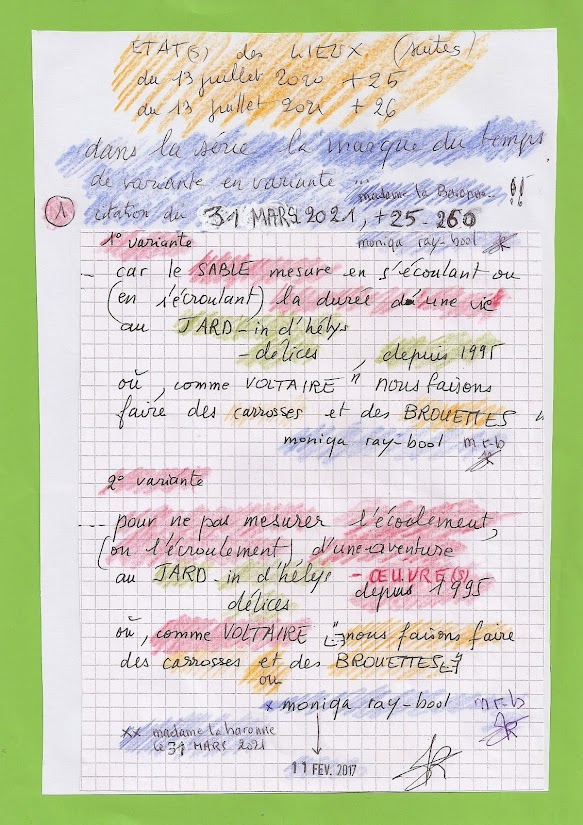 ETAT(s) des LIEUX (suites)
du 13 juillet 2020 +25
du 13 juillet 2021 +26
dans la série la marque du temps
de variante en variante ...
madame la Baronne... !!
1 citation du 31 MARS 2021, +25-260
moniqa ray-bool
1° variante
... car le SABLE mesure en s'écoulant ou
(en s'écroulant) la durée d'une vie
au JARD-in d'hélys
- délices, depuis 1995
où, comme VOLTAIRE " nous faisons
faire des carrosses et des BROUETTES "
moniqa ray-bool m r-b
2° variante
... pour ne pas mesurer l'écoulement,
(ou l'écroulement) d'une aventure
au JARD-in d'hélys - ŒUVRE(s)
délices depuis 1995
où, comme VOLTAIRE "nous faisons faire
des carrosses et des BROUETTES"
ou
x moniqa ray-bool m r-b
xx madame la baronne
le 31 MARS 2021
11 FEV. 2017